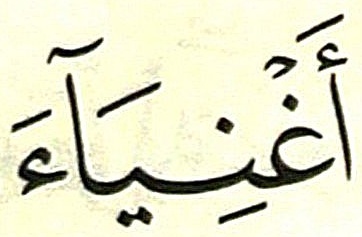 أَغْنِيَآءَ